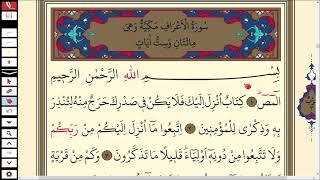 سُورَةُ الْأَعْرَافِ مَكِّيَّةٌ وَهِيَ
مِائَتَانِ وَسِتُّ آيَاتٍ
بِسْمِ اللهِ الرَّحْمٰنِ الرَّحِيمِ
الٓمٓصٓ ﴿١﴾ كِتَابٌ أُنْزِلَ إِلَيْكَ فَلَا يَكُنْ فِي صَدْرِكَ حَرَجٌ مِنْهُ لِتُنْذِرَ
بِهِ وَذِكْرَى لِلْمُؤْمِنِينَ ﴿٢﴾ اِتَّبِعُوا مَا أُنْزِلَ إِلَيْكُمْ مِنْ رَبِّكُمْ
وَلَا تَتَّبِعُوا مِنْ دُونِهِ أَوْلِيَاءَ قَلِيلًا مَا تَذَكَّرُونَ ﴿٣﴾ وَكَمْ مِنْ قَرْيَةٍ